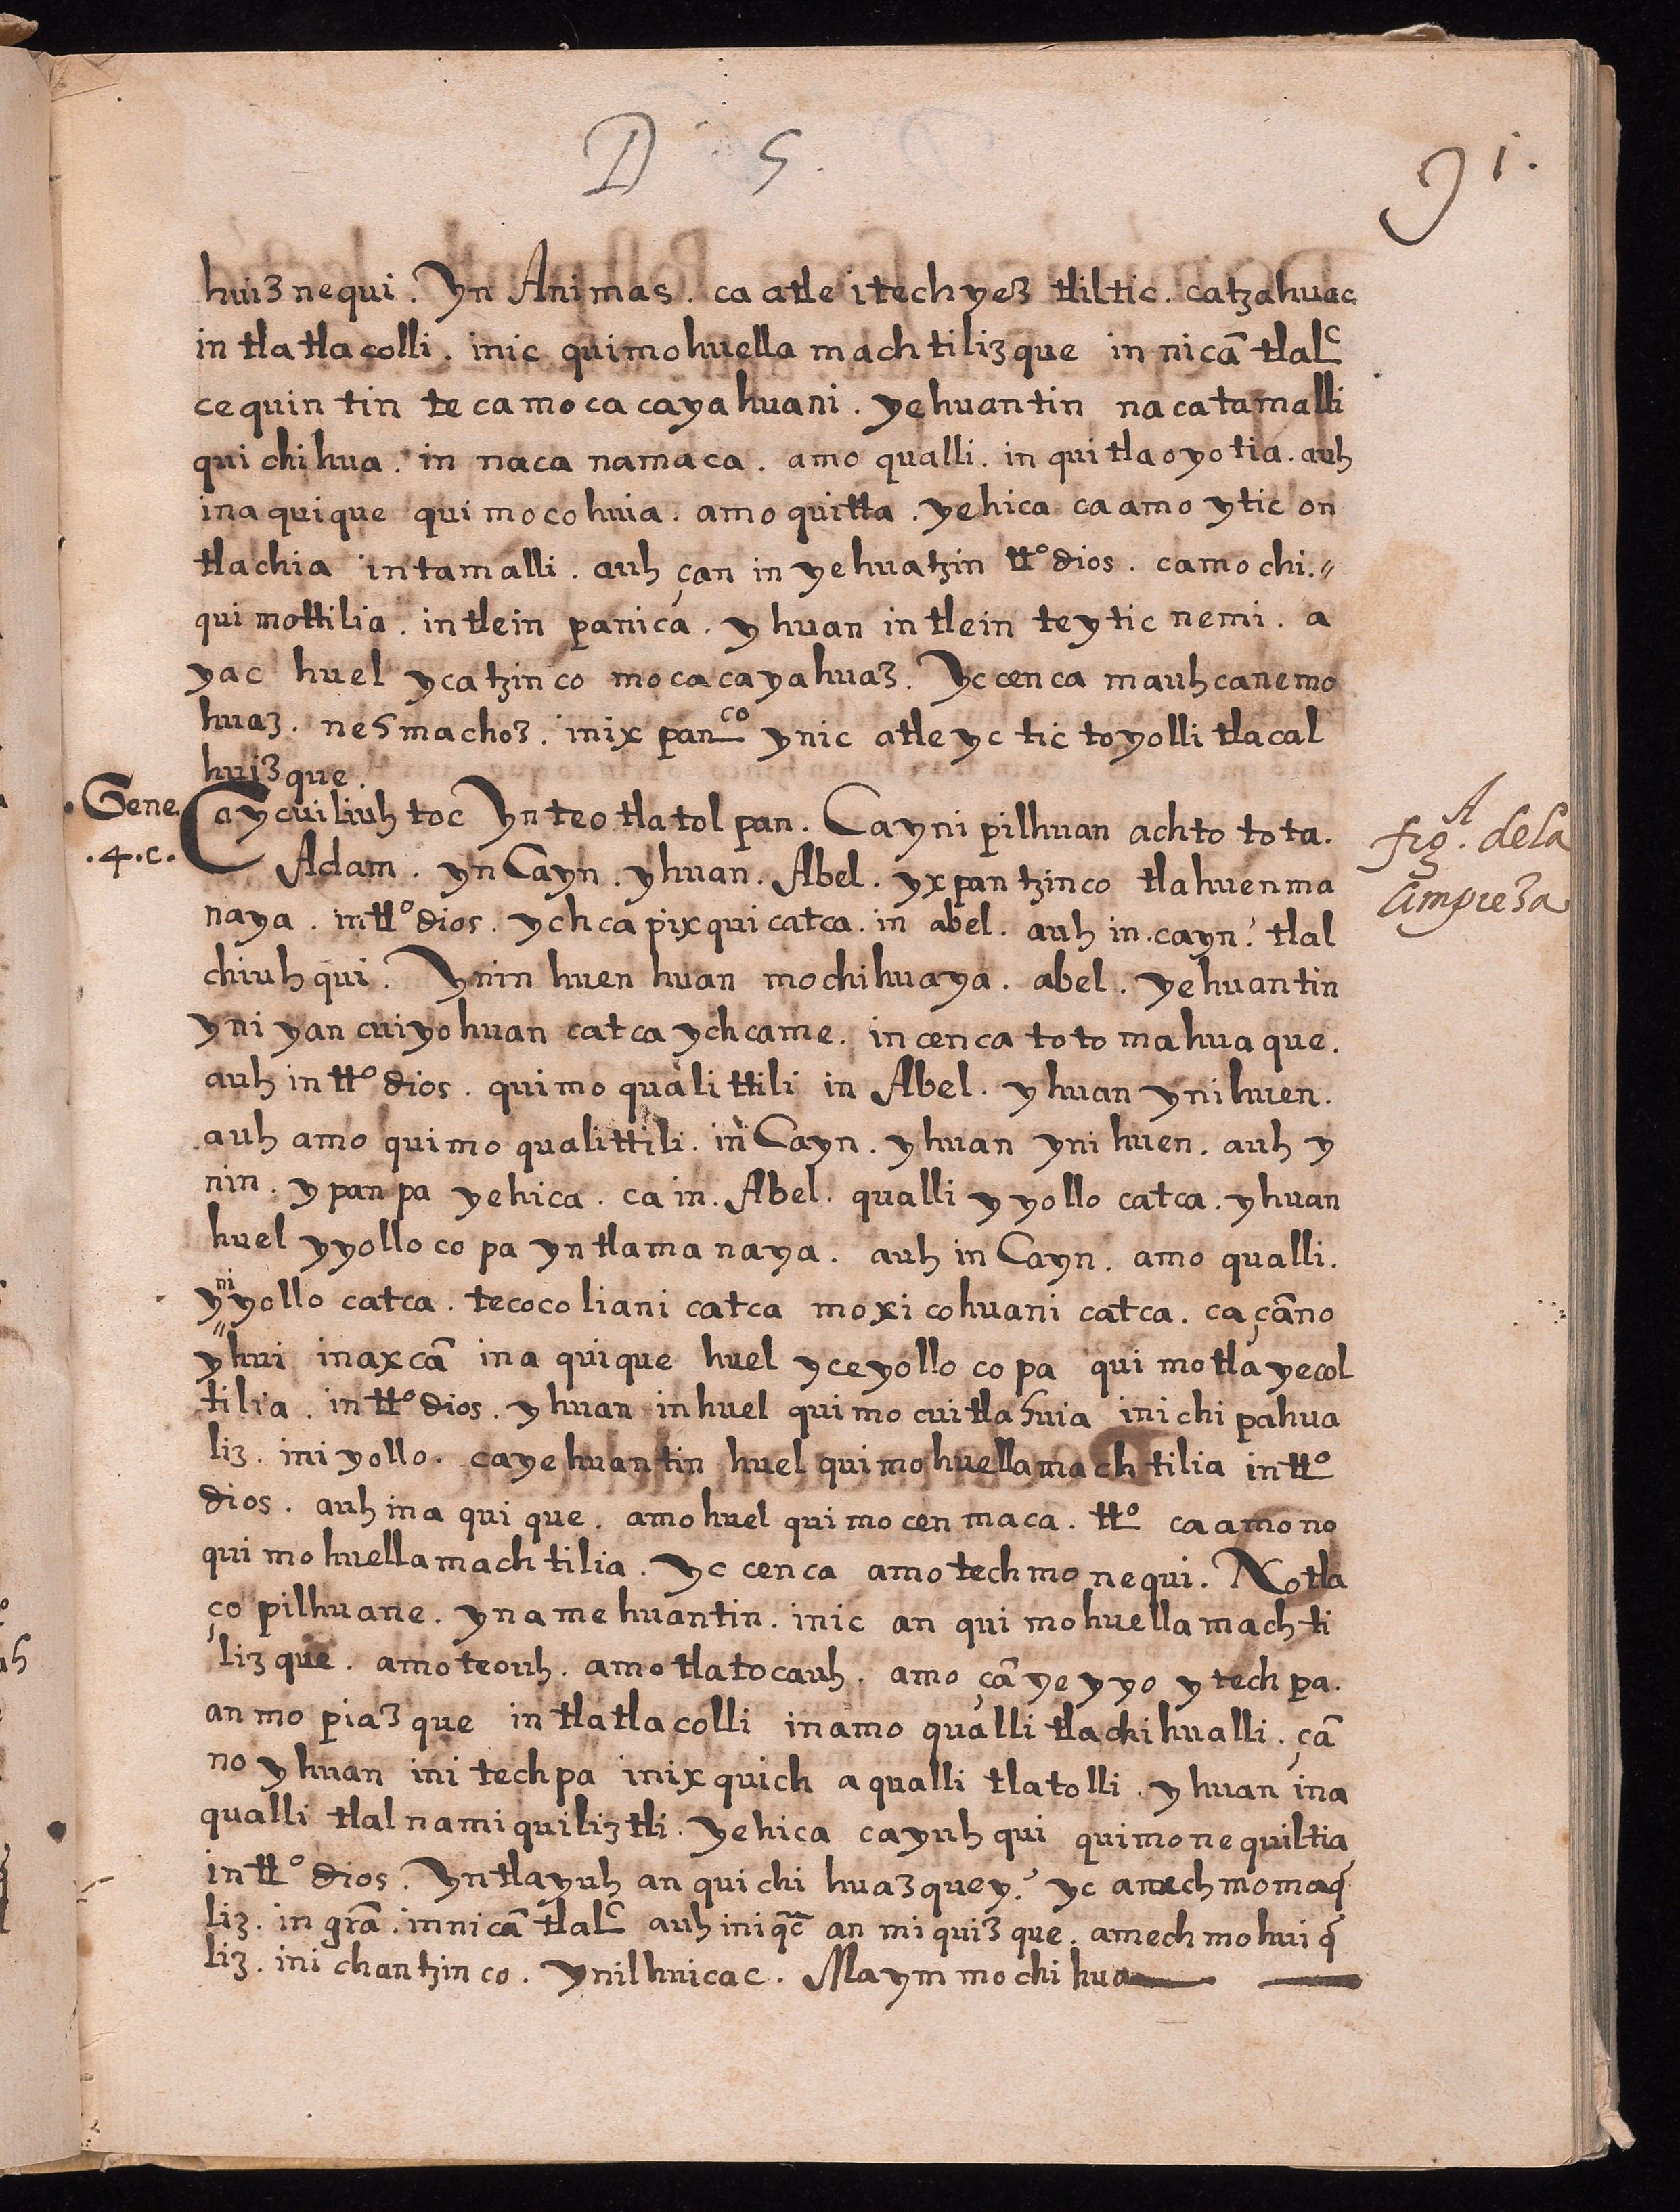 D 5.
91.
huiz nequi. Yn Animas. ca atle itech yez tliltic. catzahuac
in tlatlacolli. inic quimohuella machtilizque in nicā tlalc
cequin tin te camoca cayahuani. yehuantin nacatamalli
qui chihua. in naca namaca. amo qualli. in quitlaoyotia. auh
inaquique quimocohuia. amo quitta. yehica ca amo ytic on
tlachia intamalli. auh çan in yehuatzin tto dios. camochi.
quimottilia. intlein panica. yhuan intlein teytic nemi. a
yac huel ycatzinco mocacayahuaz. Yc cenca mauhcanemo
huaz. nesmachoz. inixpanco ynic atle yc tictoyollitlacal
huizque.
Gene.
.4.c.
Caycuiliuhtoc Ynteotlatolpan. Cayni pilhuan achto tota.
Adam. yn Cayn. yhuan. Abel. yxpantzinco tlahuenma
naya. intto dios. ychcapixqui catca. in abel. auh in. cayn? tlal
chiuhqui. Ynin huenhuan mochihuaya. abel. yehuantin
yni yancuiyohuan catca ychcame. in cenca totomahuaque.
auh in tto dios. quimoqualittili in Abel. yhuan ynihuen.
auh amo quimo qualittili. in Cayn. yhuan yni huen. auh y
nin. ypanpa yehica. ca in. Abel. qualli yyollo catca. yhuan
huel yyollocopa yntlamanaya. auh in Cayn. amo qualli.
yniyollo catca. tecocoliani catca moxicohuani catca. ca çāno
yhui inaxcā inaquique huel yceyollocopa quimotlayecol
tilia. intto dios. yhuan inhuel quimocuitlahuia inichipahua
liz. iniyollo. cayehuantin huel quimohuellamachtilia intto
dios. auh inaquique. amohuel quimocenmaca. tto ca amono
quimohuellamachtilia. Yc cenca amotechmonequi. Notla
ço pilhuane. yn amehuantin. inic anquimohuellamachti
lizque. amoteouh. amotlatocauh. amo çā yeyyo ytechpa.
anmopiazque in tlatlacolli inamo qualli tlachihualli. çā
no yhuan initechpa inixquich aqualli tlatolli. yhuan ina
qualli tlalnamiquiliztli. yehica cayuhqui quimonequiltia
intto dios. Yntlayuh anquichihuazquey? yc amechmomaq̃
liz. in grā. innicā tlalc auh iniqc̄ anmiquizque. amechmohuiq̃
liz. inichantzinco. ynilhuicac. Maymmochihua
A
fig. dela
limpieza